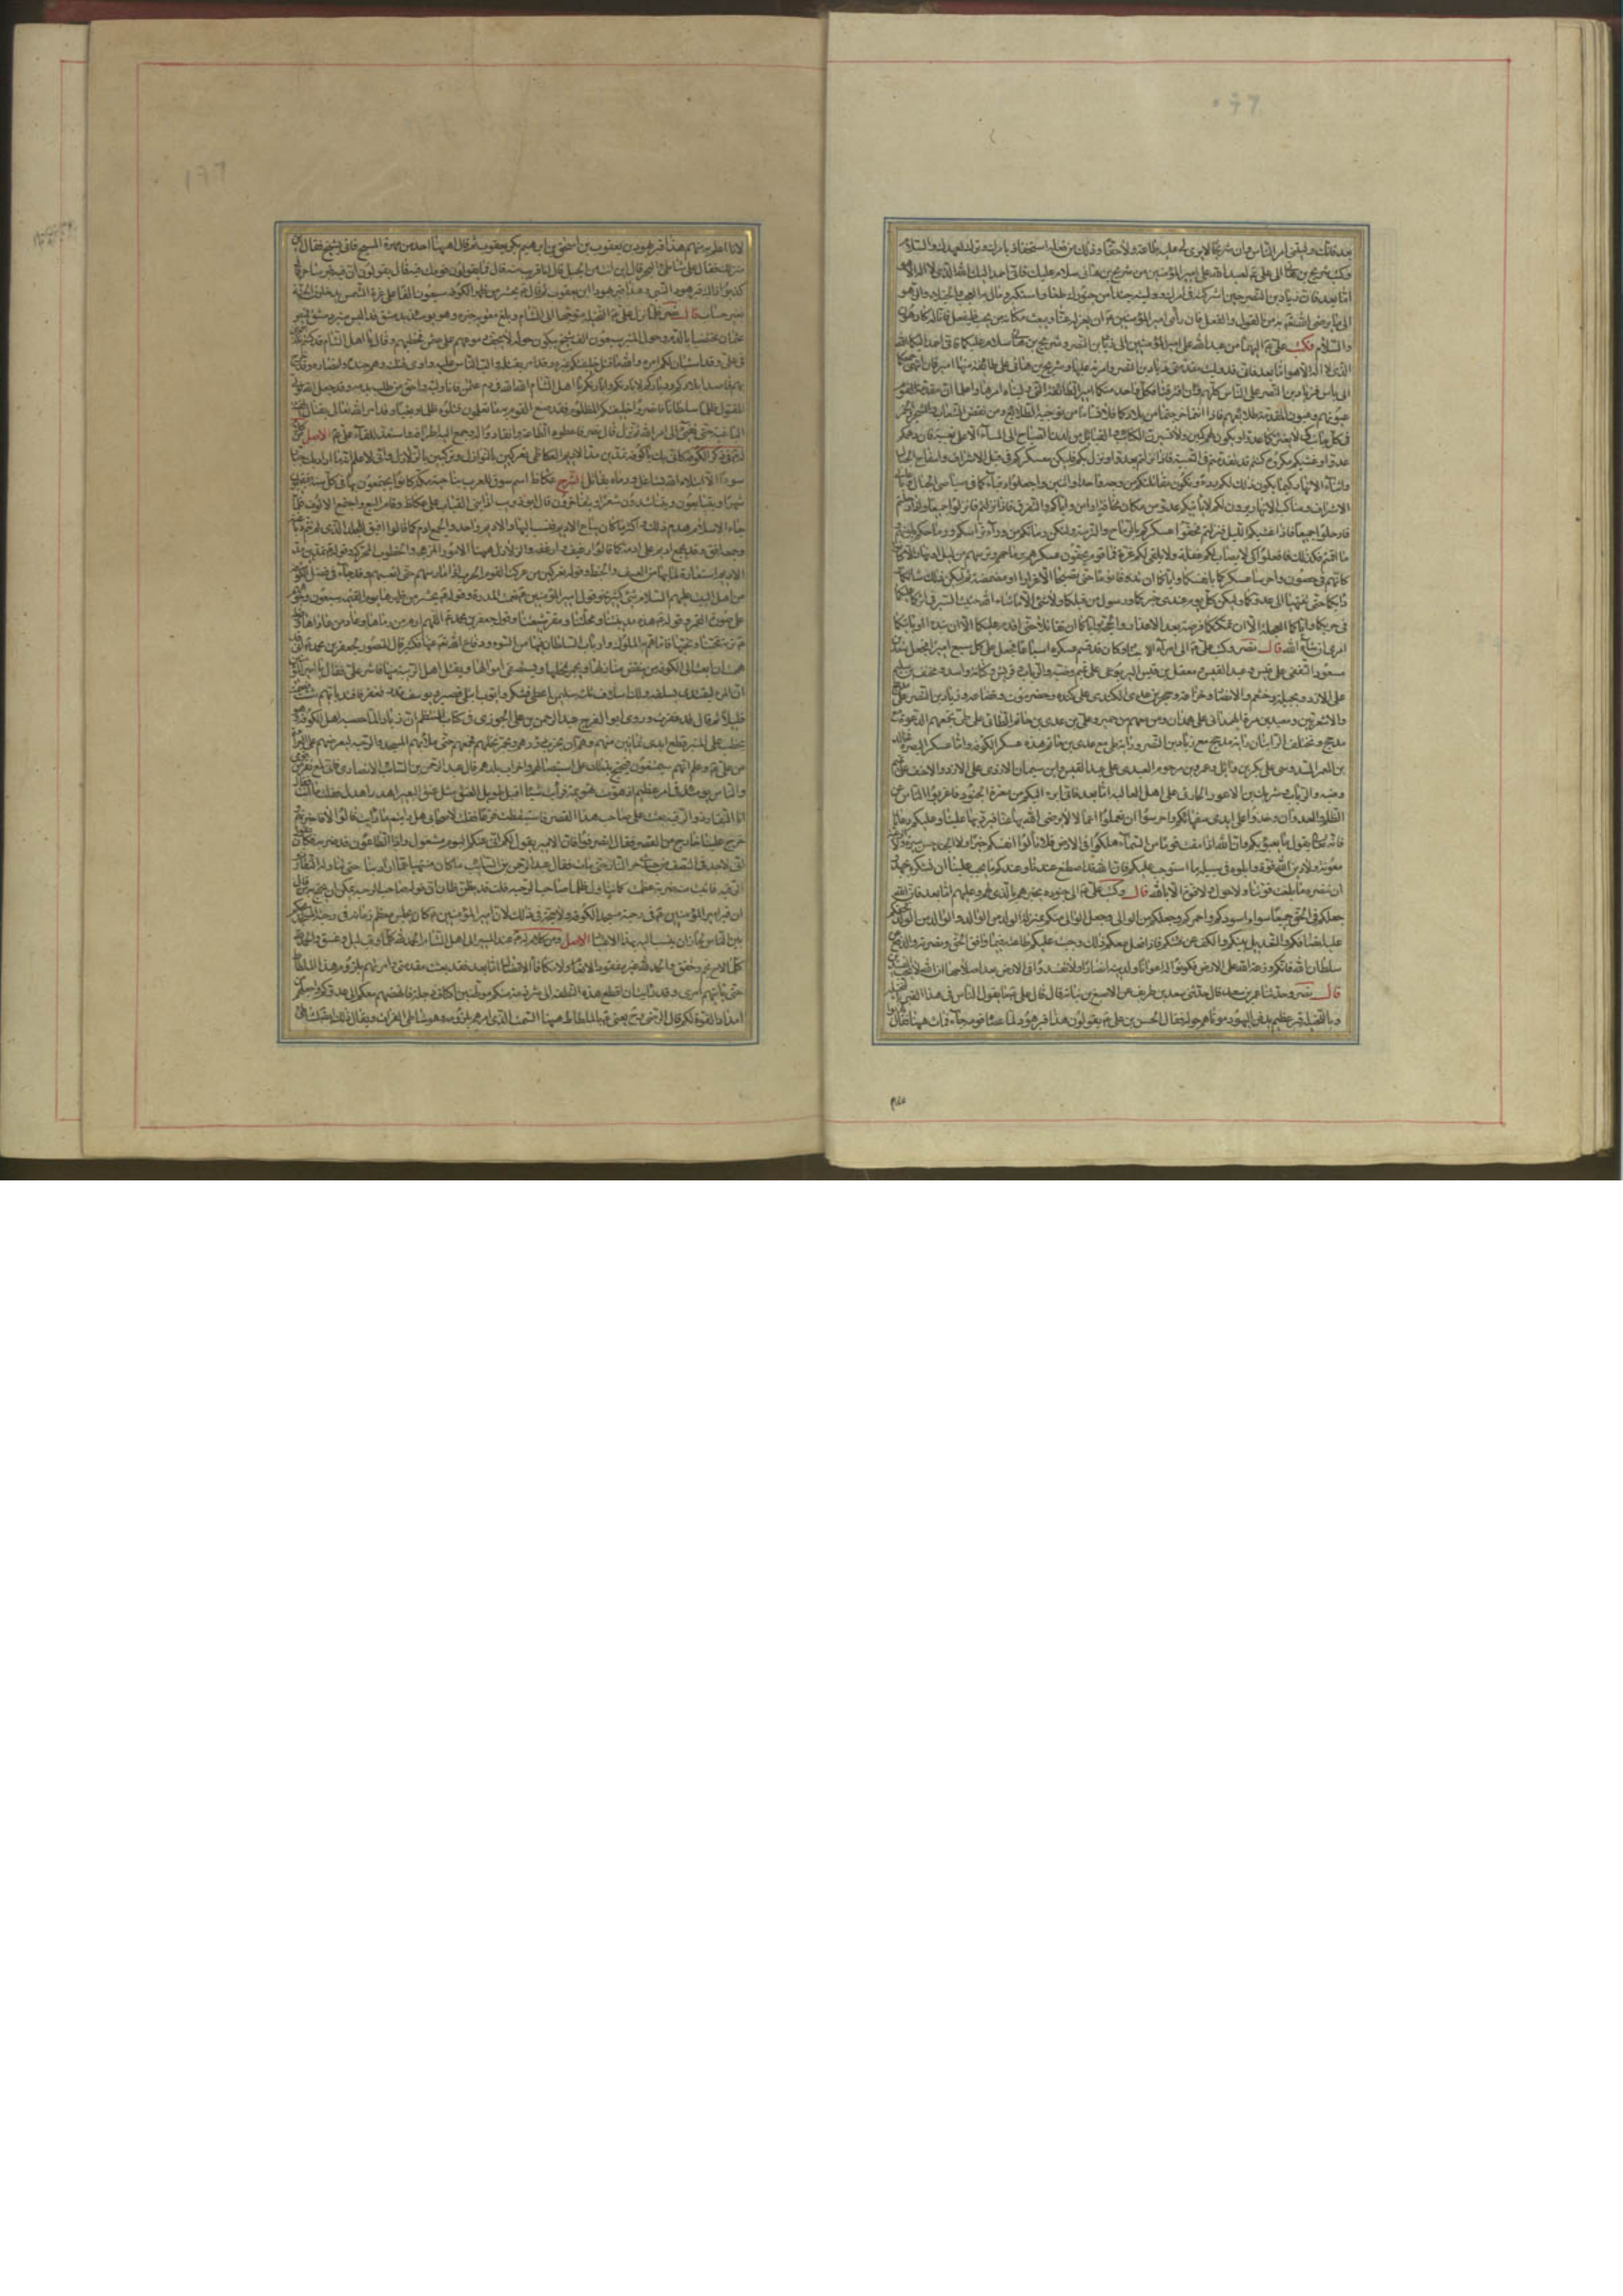 بعد فانك وليتنى امر الناس وان شريحا لا يرى لى عليه طاعة ولا حقا وذلك من فعله بى استخفاف بامرك وترك لعهدك والسلام
وكتب شريح بن هانى الى على ع لعبد الله على امير المؤمنين من شريح بن هانى سلام عليك فانى احمد اليك الله الذى لا اله الا هو
اما بعد فان زياد بن النضر حين اشركته فى امرك ووليته جندا من جنودك طغى واستكبر ومال به العجب والخيلاء والزهو
الى ما لا يرضى الله تعالى به من القول والفعل فان رأى امير المؤمنين ع ان يعزله عنا ويبعث مكانه من يحب فليفعل فانا له كارهون
والسلام فكتب على ع اليهما من عبد الله على امير المؤمنين الى زياد بن النضر وشريح بن هانى سلام عليكما فانى احمد اليكما الله
الذى لا اله الا هو اما بعد فانى قد وليت مقدمتى زياد بن النضر وامرته عليها وشريح بن هانى على طائفة منها امير فان انتهى جمعكما
الى باس فزياد بن النضر على الناس كلهم وان افترقتما فكل واحد منكما امير الطائفة التى وليناه امرها واعلما ان مقدمة القوم
عيونهم وعيون المقدمة طلائعهم فاذا انتما خرجتما من بلادكما فلا تسأما من توجيه الطلائع ومن نفض الشعاب والشجر والخمر
فى كل جانب كى لا يغتركما عدو او يكون لهم كمين ولا تسيرن الكتائب والقبائل من لدن الصباح الى المساء الا على تعبية فان دهمكم
عدو او غشيكم مكروه كنتم قد تقدمتم فى التعبية فاذا نزلتم بعدو او نزل بكم فليكن معسكركم فى قبل الاشراف وسفاح الجبال
واثناء الانهار كيما يكون ذلك لكم ردءا وتكون مقاتلتكم من وجه واحد او اثنين واجعلوا رقباءكم فى صياصى الجبال وباعلى
الاشراف ومناكب الانهار يرون لكم لا يأتيكم عدو من مكان مخافة او امن واياكم والتفرق فاذا نزلتم فانزلوا جميعا واذا رحلتم
فارحلوا جميعا فاذا غشيكم الليل فنزلتم فحفوا عسكركم بالرماح والترسة ولتكن رماتكم من وراء تراسكم ورماحكم يلونهم
ما اقمتم فكذلك فافعلوا كى لا يصاب لكم غفلة ولا يلقى لكم غرة فما قوم يحفون عسكرهم برماحهم وترسهم من ليل او نهار الا كانوا
كانهم فى حصون واحرسا عسكركما بانفسكما واياكما ان تذوقا نوما حتى تصبحا الا غرارا او مضمضة ثم ليكن ذلك شانكما
دأبكما حتى تنتهيا الى عدوكما وليكن كل يوم عندى خبركما ورسول من قبلكما ولا شىء الا ما شاء الله حثيث السير فى اثركما عليكما
فى حربكما واياكما العجلة الا ان تمكنكما فرصة بعد الاعذار والحجة واياكما ان تقاتلا حتى اقدم عليكما الا ان تبدءا او يأتيكما
امرى ان شاء الله قال نصر وكتب على ع الى امراء الاجناد وكان قد قسم عسكره اسباعا فجعل على كل سبع اميرا فجعل سعد بن
مسعود الثقفى على قيس وعبد القيس ومعقل بن قيس اليربوعى على تميم وضبة والرباب وقريش وكنانة واسد ومخنف بن سليم
على الازد وبجيلة وخثعم والانصار وخزاعة وحجر بن عدى الكندى على كندة وحضرموت وقضاعة وزياد بن النضر على مذحج
والاشعريين وسعيد بن مرة الهمدانى على همدان ومن معهم من حمير وعدى بن حاتم الطائى على طى تجمعهم الدعوة مع
مذحج وتختلف الرايتان راية مذحج مع زياد بن النضر وراية طى مع عدى بن حاتم هذه عساكر الكوفة واما عساكر البصرة فخالد
بن المعمر السدوسى على بكر بن وائل وعمرو بن مرحوم العبدى على عبد القيس وابن شيمان الازدى على الازد والاحنف على تميم
وضبة والرباب وشريك بن الاعور الحارثى على اهل العالية اما بعد فانى ابرء اليكم من معرة الجنود فاعزبوا الناس عن
الظلم والعدوان وخذوا على ايدى سفهائكم واحرسوا ان تعملوا اعمالا لا يرضى الله بها عنا فيرد بها علينا وعليكم دعاءنا
فانه تعالى يقول ما يعبؤ بكم ربى وان الله اذا مقت قوما من السماء هلكوا فى الارض فلا تألوا انفسكم خيرا ولا الجند حسن سيرة ولا الرعية
معونة ولا دين الله قوة وابلوه فى سبيله ما استوجب عليكم فان الله قد اصطنع عندنا وعندكم ما يجب علينا ان نشكره بجهدنا
ان ننصره ما بلغت قوتنا ولا حول ولا قوة الا بالله قال وكتب على ع الى جنوده يخبرهم بالذى لهم وعليهم اما بعد فان الله
جعلكم فى الحق جميعا سواء اسودكم واحمركم وجعلكم من الوالى وجعل الوالى منكم بمنزلة الولد من الوالد والوالد من الولد فحقكم
عليه انصافكم والتعديل بينكم والكف عن فيئكم فاذا فعل معكم ذلك وجبت عليكم طاعته فيما وافق الحق ونصرته والدفع عن
سلطان الله فانكم وزعة الله فى الارض فكونوا له اعوانا ولدينه انصارا ولا تفسدوا فى الارض بعد اصلاحها ان الله لا يحب المفسدين
قال نصر وحدثنا عمر بن سعد قال حدثنى سعد بن طريف عن الاصبغ بن نباتة قال قال على ع ما يقول الناس فى هذا القبر
وبالنخيلة قبر عظيم يدفن اليهود موتاهم حوله فقال الحسن بن على ع يقولون هذا قبر هود لما عصاه قومه جاء فمات هيهنا فقال
لانا اعلم به منهم هذا قبر يهودا بن يعقوب بن اسحق بن ابرهيم بكر يعقوب ثم قال اههنا احد من مهرة فاتى بشيخ فقال اين
منزلك فقال على شاطئ البحر قال اين انت من الجبل قال انا قريب منه قال فما يقول قومك فيه قال يقولون ان فيه قبر ساحر قال
كذبوا ذاك قبر هود النبى وهذا قبر يهودا ابن يعقوب ثم قال ع يحشر من ظهر الكوفة سبعون الفا على غرة الشمس يدخلون الجنة
بغير حساب قال نصر فلما نزل على ع النخيلة متوجها الى الشام وبلغ معوية خبره وهو يومئذ بدمشق قد البس منبر دمشق قميص
عثمان مختضبا بالدم وحول المنبر سبعون الف شيخ يبكون حوله فخطبهم وقال يا اهل الشام قد كنتم تكذبونى
فى على وقد استبان لكم امره والله ما قتل خليفتكم غيره وهو امر بقتله والب الناس عليه واوى قتلته وهم جنده وانصاره وقد خرج
بهم قاصدا بلادكم ودياركم لابادتكم يا اهل الشام الله الله فى دم عثمان فانا وليه واحق من طلب بدمه وقد جعل الله لولى
المقتول ظلما سلطانا فانصروا خليفتكم المظلوم فقد صنع القوم به ما تعلمون قتلوه ظلما وبغيا وقد امر الله تعالى بقتال الفئة
الباغية حتى تفىء الى امر الله ثم نزل قال نصر فاعطوه الطاعة وانقادوا له وجمع اليه اطرافه واستعد للقاء على ع الاصل
فى ذكر الكوفة كانى بك يا كوفة تمدين مد الاديم العكاظى تعركين بالنوازل وتركبين بالزلازل وانى لاعلم انه ما اراد بك جبار
سوءا الا ابتلاه الله بشاغل ورماه بقاتل الشرح عكاظ اسم سوق للعرب بناحية مكة كانوا يجتمعون بها فى كل سنة يقيمون
شهرا ويتبايعون ويتناشدون شعرا ويتفاخرون قال ابو ذؤيب اذا بنى القباب على عكاظ وقام البيع واجتمع الالوف فلما
جاء الاسلام هدم ذلك واكثر ما كان يباع الاديم بها فنسب اليها والاديم واحد والجمع ادم كما قالوا افيق للجلد الذى لم تتم دباغته
وجمعه افق وقد يجمع اديم على ادمة كما قالوا رغيف وارغفة والزلازل هيهنا الامور المزعجة والخطوب المحركة وقوله ع تمدين مد
الاديم استعارة لما ينالها من العسف والخبط وقوله تعركين من عركت القوم الحرب اذا مارستهم حتى اتعبتهم وقد جاء فى فضل الكوفة
من اهل البيت عليهم السلام شىء كثير نحو قول امير المؤمنين ع نعمت المدرة وقوله ع يحشر من ظهرها يوم القيمة سبعون الفا وجوههم
على صورة القمر وقوله ع هذه مدينتنا ومحلتنا ومقر شيعتنا وقول جعفر بن محمد ع اللهم ارم من رماها وعاد من عاداها
تربة تحبنا ونحبها فاما ما هم به الملوك وارباب السلطان فيها من السوء ودفاع الله تعالى عنها فكثير قال المنصور لجعفر بن محمد ع انى قد
هممت ان ابعث الى الكوفة من ينقض منازلها ويجمر نخلها ويستصفى اموالها ويقتل اهل الريبة منها فاشر على فقال يا امير المؤمنين
ان المرء ليقتدى بسلفه ولك اسلاف ثلثة سليمن اعطى فشكر وايوب ابتلى فصبر ويوسف قدر فغفر فاقتد بايهم شئت فصمت
قليلا ثم قال قد غفرت وروى ابو الفرج عبد الرحمن بن على الجوزى فى كتاب المنتظم ان زيادا لما حصبه اهل الكوفة وهو
يخطب على المنبر قطع ايدى ثمانين منهم وهم ان يخرب دورهم ويجمر نخلهم فجمعهم حتى ملأ بهم المسجد والرحبة ليعرضهم على البراءة
من على ع وعلم انهم سيمتنعون فيحتج بذلك على استيصالهم واخراب بلدهم قال عبد الرحمن بن السائب الانصارى فانى لمع نفر من قومى
والناس يومئذ فى امر عظيم اذ هومت تهويمة فرأيت شيئا اقبل طويل العنق مثل عنق البعير اهدر اهدل فقلت ما انت فقال
انا النقاد ذو الرقبة بعثت الى صاحب هذا القصر فاستيقظت فزعا فقلت لاصحابى هل رأيتم ما رأيت قالوا لا فاخبرتهم
خرج علينا خارج من القصر فقال انصرفوا فان الامير يقول لكم انى عنكم اليوم مشغول واذا الطاعون قد ضربه فكان يقول
انى لاجد فى النصف من جسدى حر النار حتى مات فقال عبد الرحمن بن السائب ما كان منتهيا عما اراد بنا حتى تناوله النقاد ذو
الرقبة فاثبت الشق منه ضربة عظمت كما تناول ظلما صاحب الرحبة قلت قد يظن ظان ان قوله صاحب الرحبة يمكن ان يحتج به من قال
ان قبر امير المؤمنين ع فى رحبة مسجد الكوفة ولا حجة فى ذلك لان امير المؤمنين ع كان يجلس معظم زمانه فى رحبة المسجد يحكم
بين الناس فجاز ان ينسب اليه بهذا الاعتبار الاصل ومن كلام له ع عند المسير الى اهل الشام الحمد لله كلما وقب ليل وغسق والحمد لله
كلما لاح نجم وخفق والحمد لله غير مفقود الانعام ولا مكافأ الافضال اما بعد فقد بعثت مقدمتى وامرتهم بلزوم هذا الملطاط
حتى يأتيهم امرى وقد رأيت ان اقطع هذه النطفة الى شرذمة منكم موطنين اكناف دجلة فانهضهم معكم الى عدوكم واجعلهم من
امداد القوة لكم قال الرضى ره يعنى ع بالملطاط هيهنا السمت الذى امرهم بلزومه وهو شاطئ الفرات ويقال ذلك لشاطئ